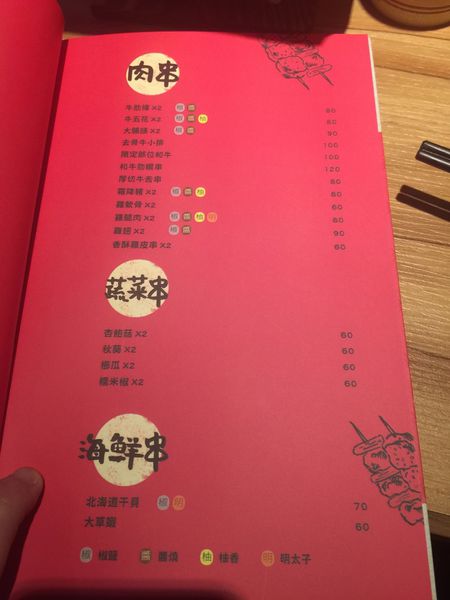 肉串
牛肋條 X2 椒 醬 80
牛五花 X2 椒 醬 柚 80
大腸頭 X2 椒 醬 90
去骨牛小排 100
限定部位和牛 100
和牛肋眼串 120
厚切牛舌串 80
霜降豬 X2 椒 醬 柚 80
雞軟骨 X2 60
雞腿肉 X2 椒 醬 柚 明 80
雞翅 X2 椒 醬 90
香酥雞皮串 X2 60
蔬菜串
杏鮑菇 X2 60
秋葵 X2 60
櫛瓜 X2 60
糯米椒 X2 60
海鮮串
北海道干貝 椒 明 70
大草蝦 60
椒 椒鹽 醬 醬燒 柚 柚香 明 明太子